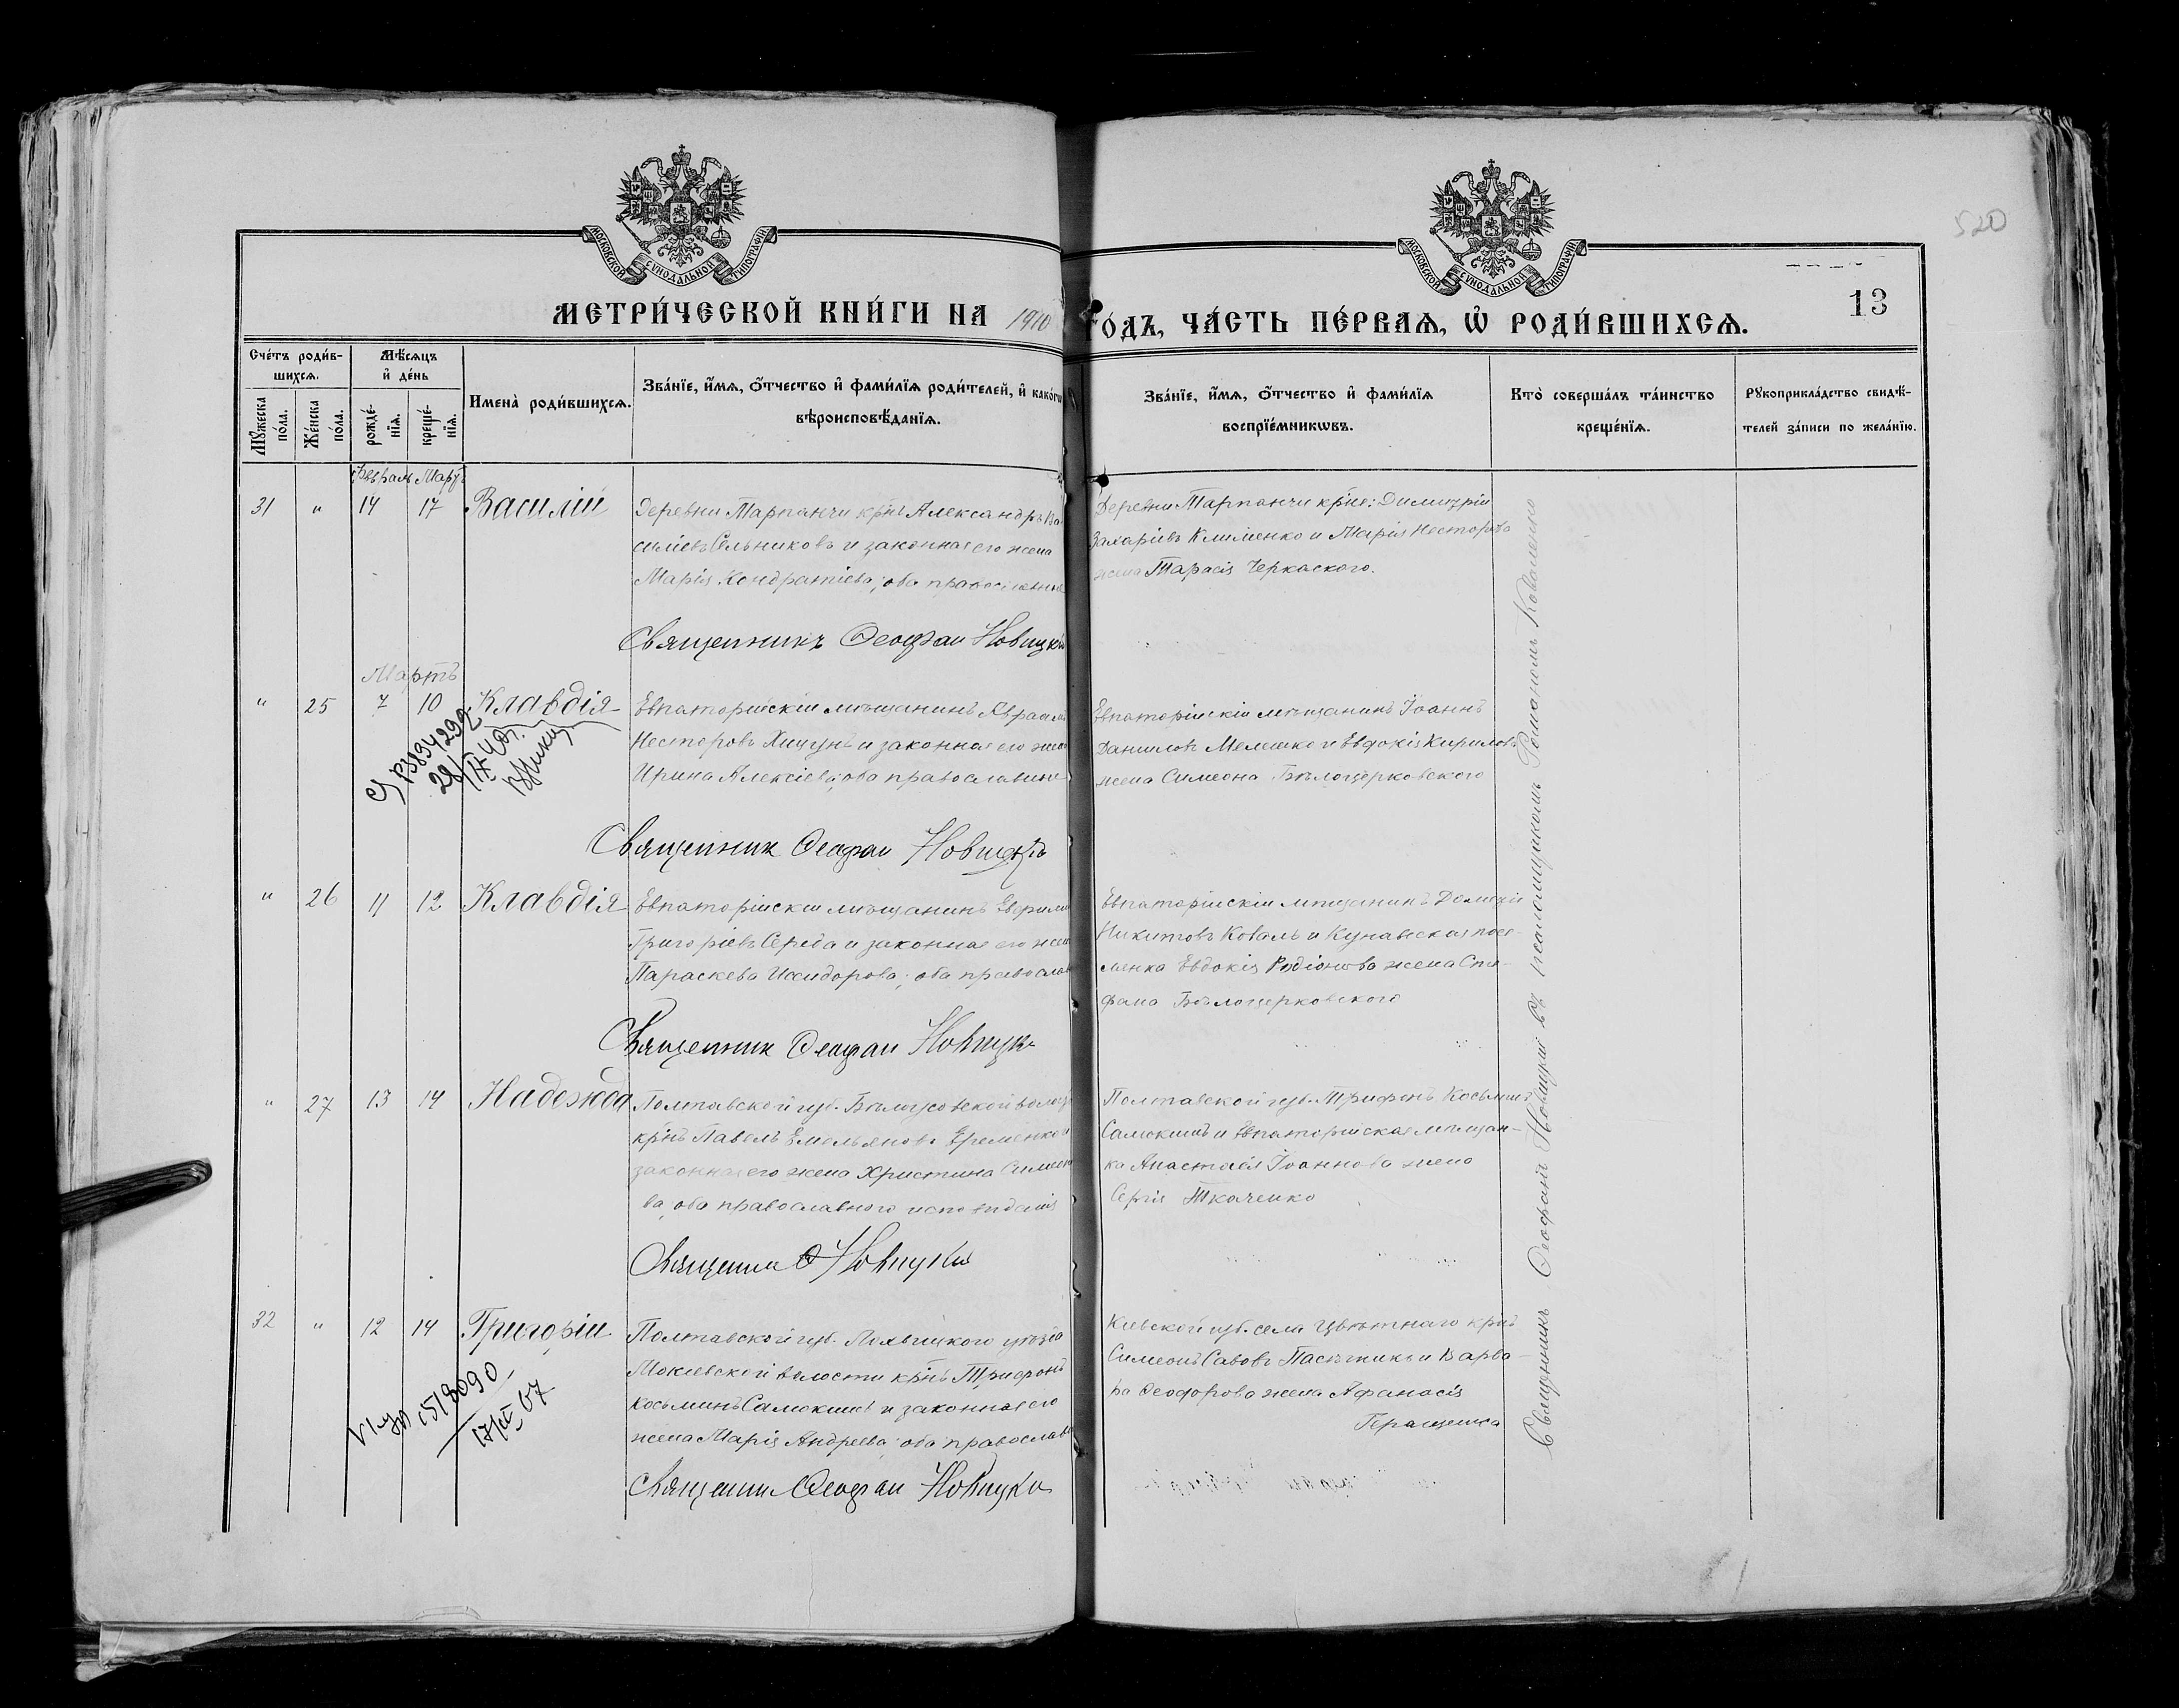 МОСКОВСКОЙ СѴНОДАЛЬНОЙ ТИПОГРАФІИ
МОСКОВСКОЙ СѴНОДАЛЬНОЙ ТИПОГРАФІИ
520
МЕТРИ́ЧЕСКОЙ КНИ́ГИ НА 1910 ГО́ДЪ, ЧА́СТЬ ПЕ́РВАѦ, Ѡ҆ РОДИ́ВШИХСѦ.
13
Сче́тъ роди́в-
шихсѧ.
Мѣ́сѧцъ
и҆ де́нь
Мꙋ́жеска
по́ла.
Же́нска
по́ла.
рожде́-
нїѧ.
креще́-
нїѧ.
Имена̀ роди́вшихсѧ.
Зва́нїе, и҆́мѧ, ѻ҆́тчество и҆ фами́лїѧ роди́телей, и҆ како́гѡ
вѣроисповѣ́данїѧ.
Зва́нїе, и҆́мѧ, ѻ҆́тчество и҆ фами́лїѧ
воспрїе́мникѡвъ.
Кто̀ соверша́лъ та́инство
креще́нїѧ.
Рꙋкоприкла́дство свидѣ́-
телей за́писи по жела́нїю.
Февраль Мартъ
31 " 14 17 Василій
Деревни Тарпанчи крнъ Александръ Ва
силіевъ Сельниковъ и законная его жена
Марія Кондратіева; оба православные
Священникъ Ѳеофан Новицкій
Деревни Тарпанчи крне: Димитрій
Захаріевъ Клименко и Марія Несторова
жена Тарасія Черкаского.
Мартъ
" 25 7 10 Клавдія
Евпаторійскій мѣщанинъ Авраамъ
Несторовъ Хицунъ и законная его жена
Ирина Алексіева; оба православные
Священник Ѳеофан Новицкій
Евпаторійскій мѣщанинъ Іоаннъ
Даниловъ Мелешко и Евдокія Кирилова
жена Симеона Бѣлоцерковского
" 26 11 12 Клавдія
Евпаторійскій мѣщанинъ Евфимій
Григоріевъ Середа и законная его жена
Параскева Исидорова; оба православ
Священник Ѳеофан Новицкій
Евпаторійскій мѣщанинъ
Никитовъ Коваль и посе-
ленка Евдокія Родіонова жена Сте-
фана Бѣлоцерковского
" 27 13 14 Надежда
Полтавской губ. Бѣлоусовской волости
крнъ Павелъ Емельяновъ Еременко и
законная его жена Христина Симеоно
ва, оба православного исповѣданія
Священник Ѳ Новицкій
Полтавской губ. Трифонъ Косьминъ
Самокишъ и Евпаторійская мѣщан-
ка Анастасія Іоаннова жена
Сергія Ткаченко
32 " 12 14 Григорій
Полтавской губ. Лохвицкого уѣзда
Мокіевской волости крнъ Трифонъ
Косьминъ Самокишъ и законная его
жена Марія Андреева оба православ
Священник Ѳеофан Новицкій
Кіевской губ. села Цвѣтнаго крнъ
Симеонъ Савовъ Пасѣчникъ и Варва-
ра Ѳеодорова жена Афанасія
Геращенка
Священникъ Ѳеофанъ Новицкій съ псаломщикомъ Романомъ Коваленко